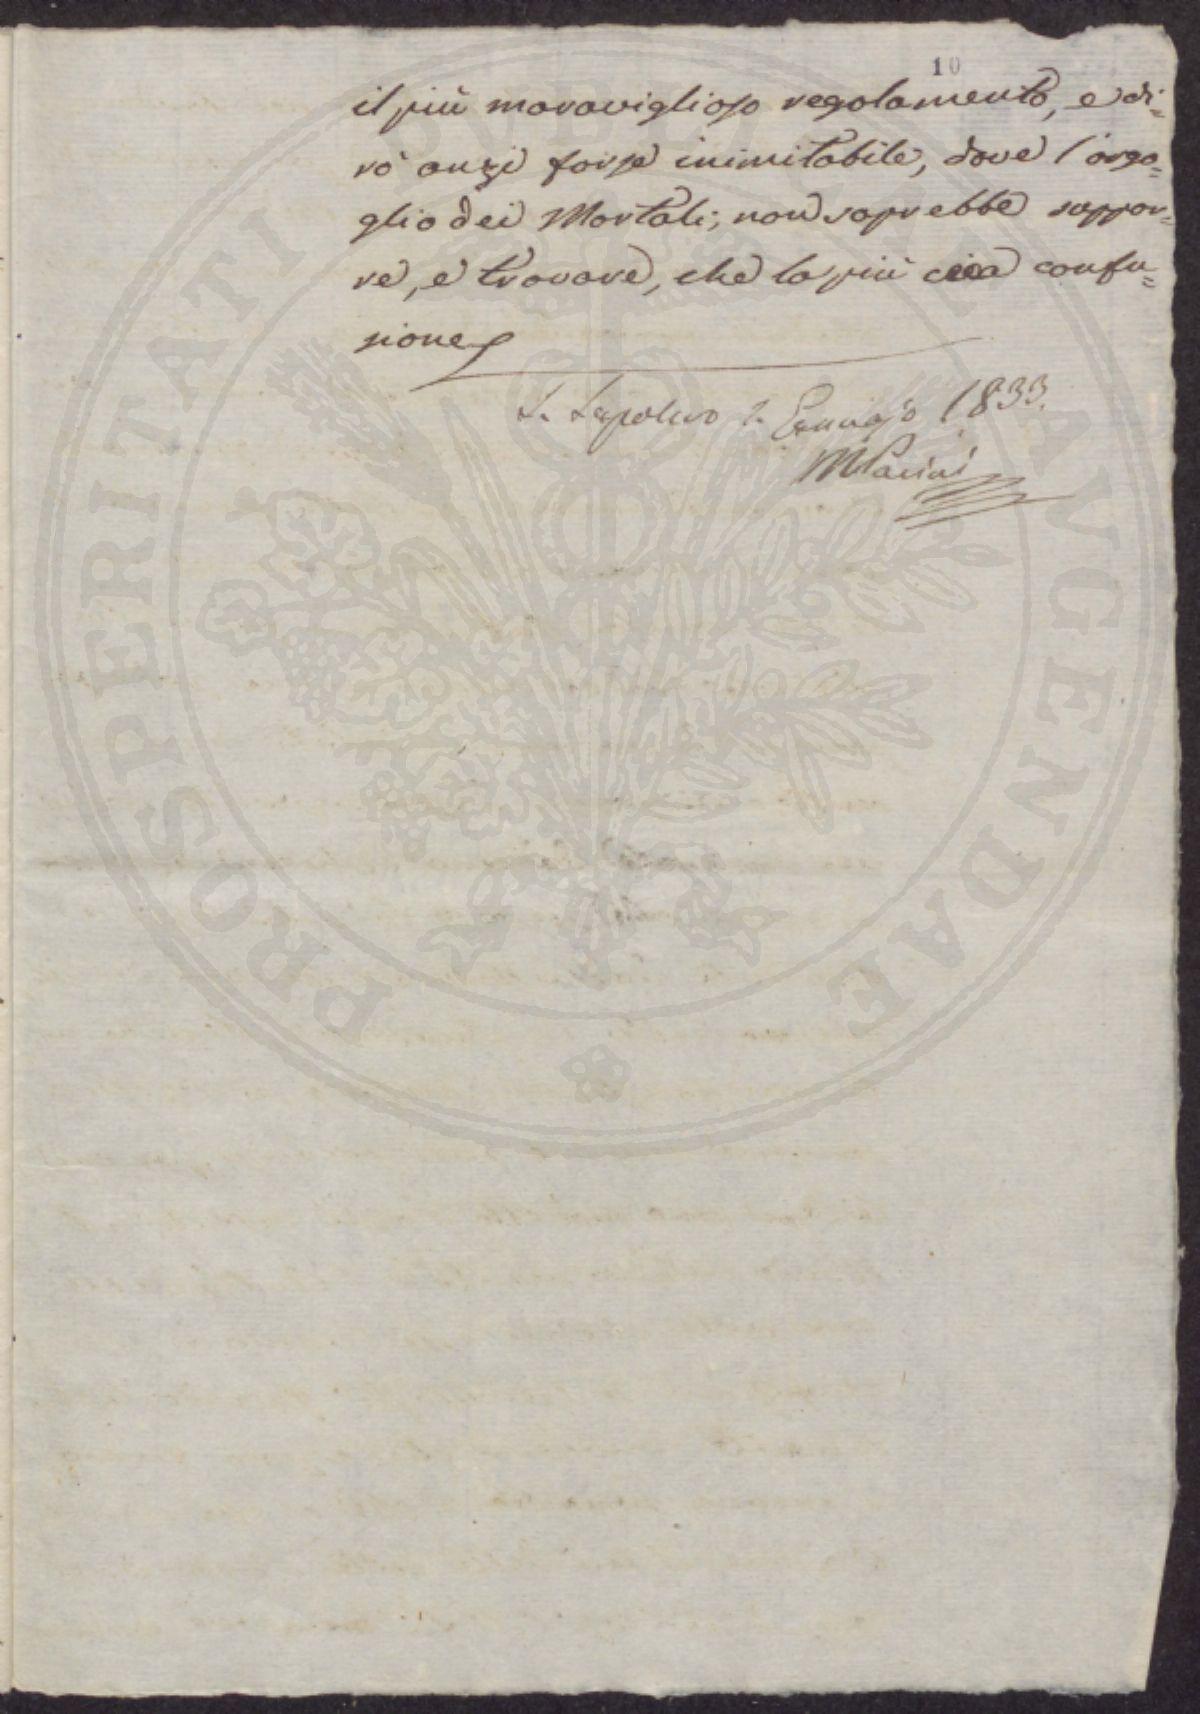 10
il più maraviglioso regolamento, e di=
rò anzi forse inimitabile, dove l'orgo=
glio dei Mortali, non saprebbe suppor=
re, e trovare, che la più cieca confu=
sione
S. Sepolcro 2. Gennajo 1833.
MPacini
PROSPERITATI PUBLICAE AVGENDAE